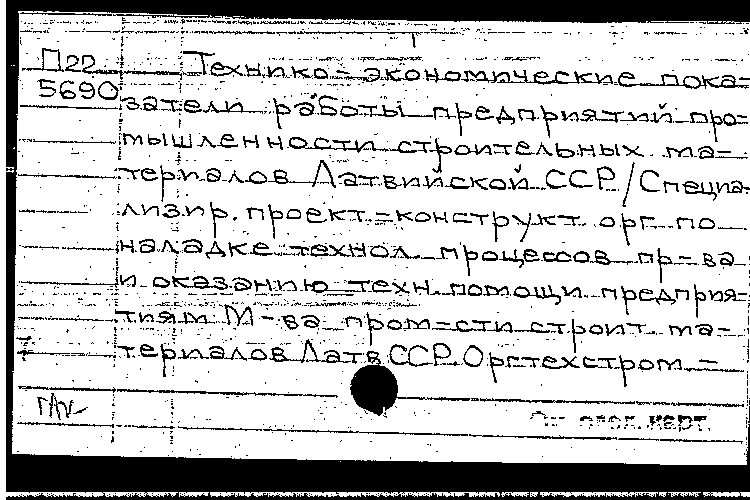 П22
5690
Технико-экономические пока-
затели работы предприятий про-
мышленности строительных ма-
териалов Латвийской ССР/Специа-
лизир. проект.-конструкт. орг. по
наладке технол. процессов пр-ва
и оказанию техн. помощи предприя-
тиям М-ва пром-сти строит. ма-
териалов Латв ССР. Оргтехстром. -
карт.